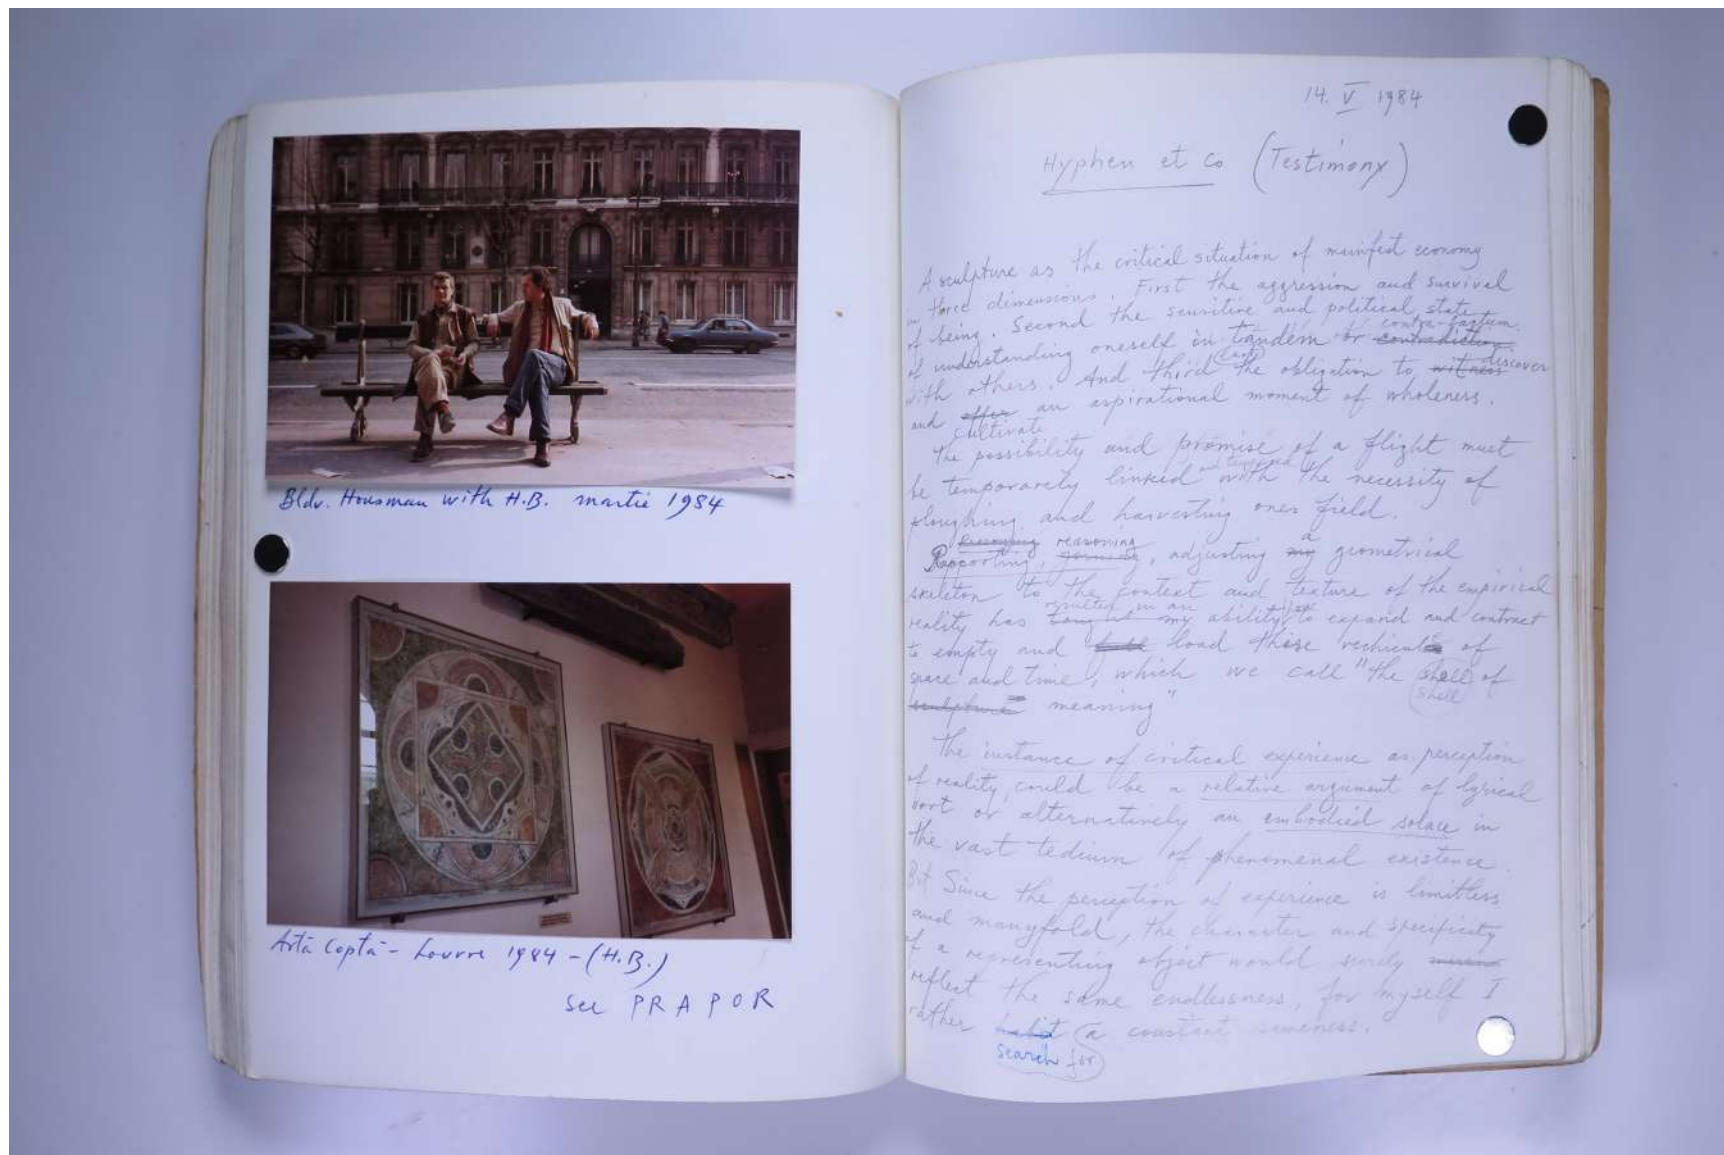 Bldv. Housman with H.B. martie 1984
Artă Coptă - Louvre 1984 - (H.B.)
see PRAPOR
14. V 1984
Hyphen et Co (Testimony)
A sculpture as the critical situation of manifest economy
in three dimensions. First the aggression and survival
of being. Second the sensitive and political state
of understanding oneself in tandem or contradiction
with others. And third the obligation to witness discover
and offer an aspirational moment of wholeness.
cultivate
The possibility and promise of a flight must
be temporarely linked with the necessity of
ploughing and harvesting ones field.
reasoning a
Rapporting, adjusting my geometrical
skeleton to the context and texture of the empirical
resulted in an
reality has my ability to expand and contract
to empty and load these vechicules of
space and time, which we call "the shell of
shell
sculpture meaning"
The instance of critical experience as perception
of reality, could be a relative argument of lyrical
sort or alternatively an embodied solace in
the vast tedium of phenomenal existence.
But Since the perception of experience is limitless
and manyfold, the character and specificity
of a representing object would surely
reflect the same endlessness, for myself I
rather a constant sameness.
search for